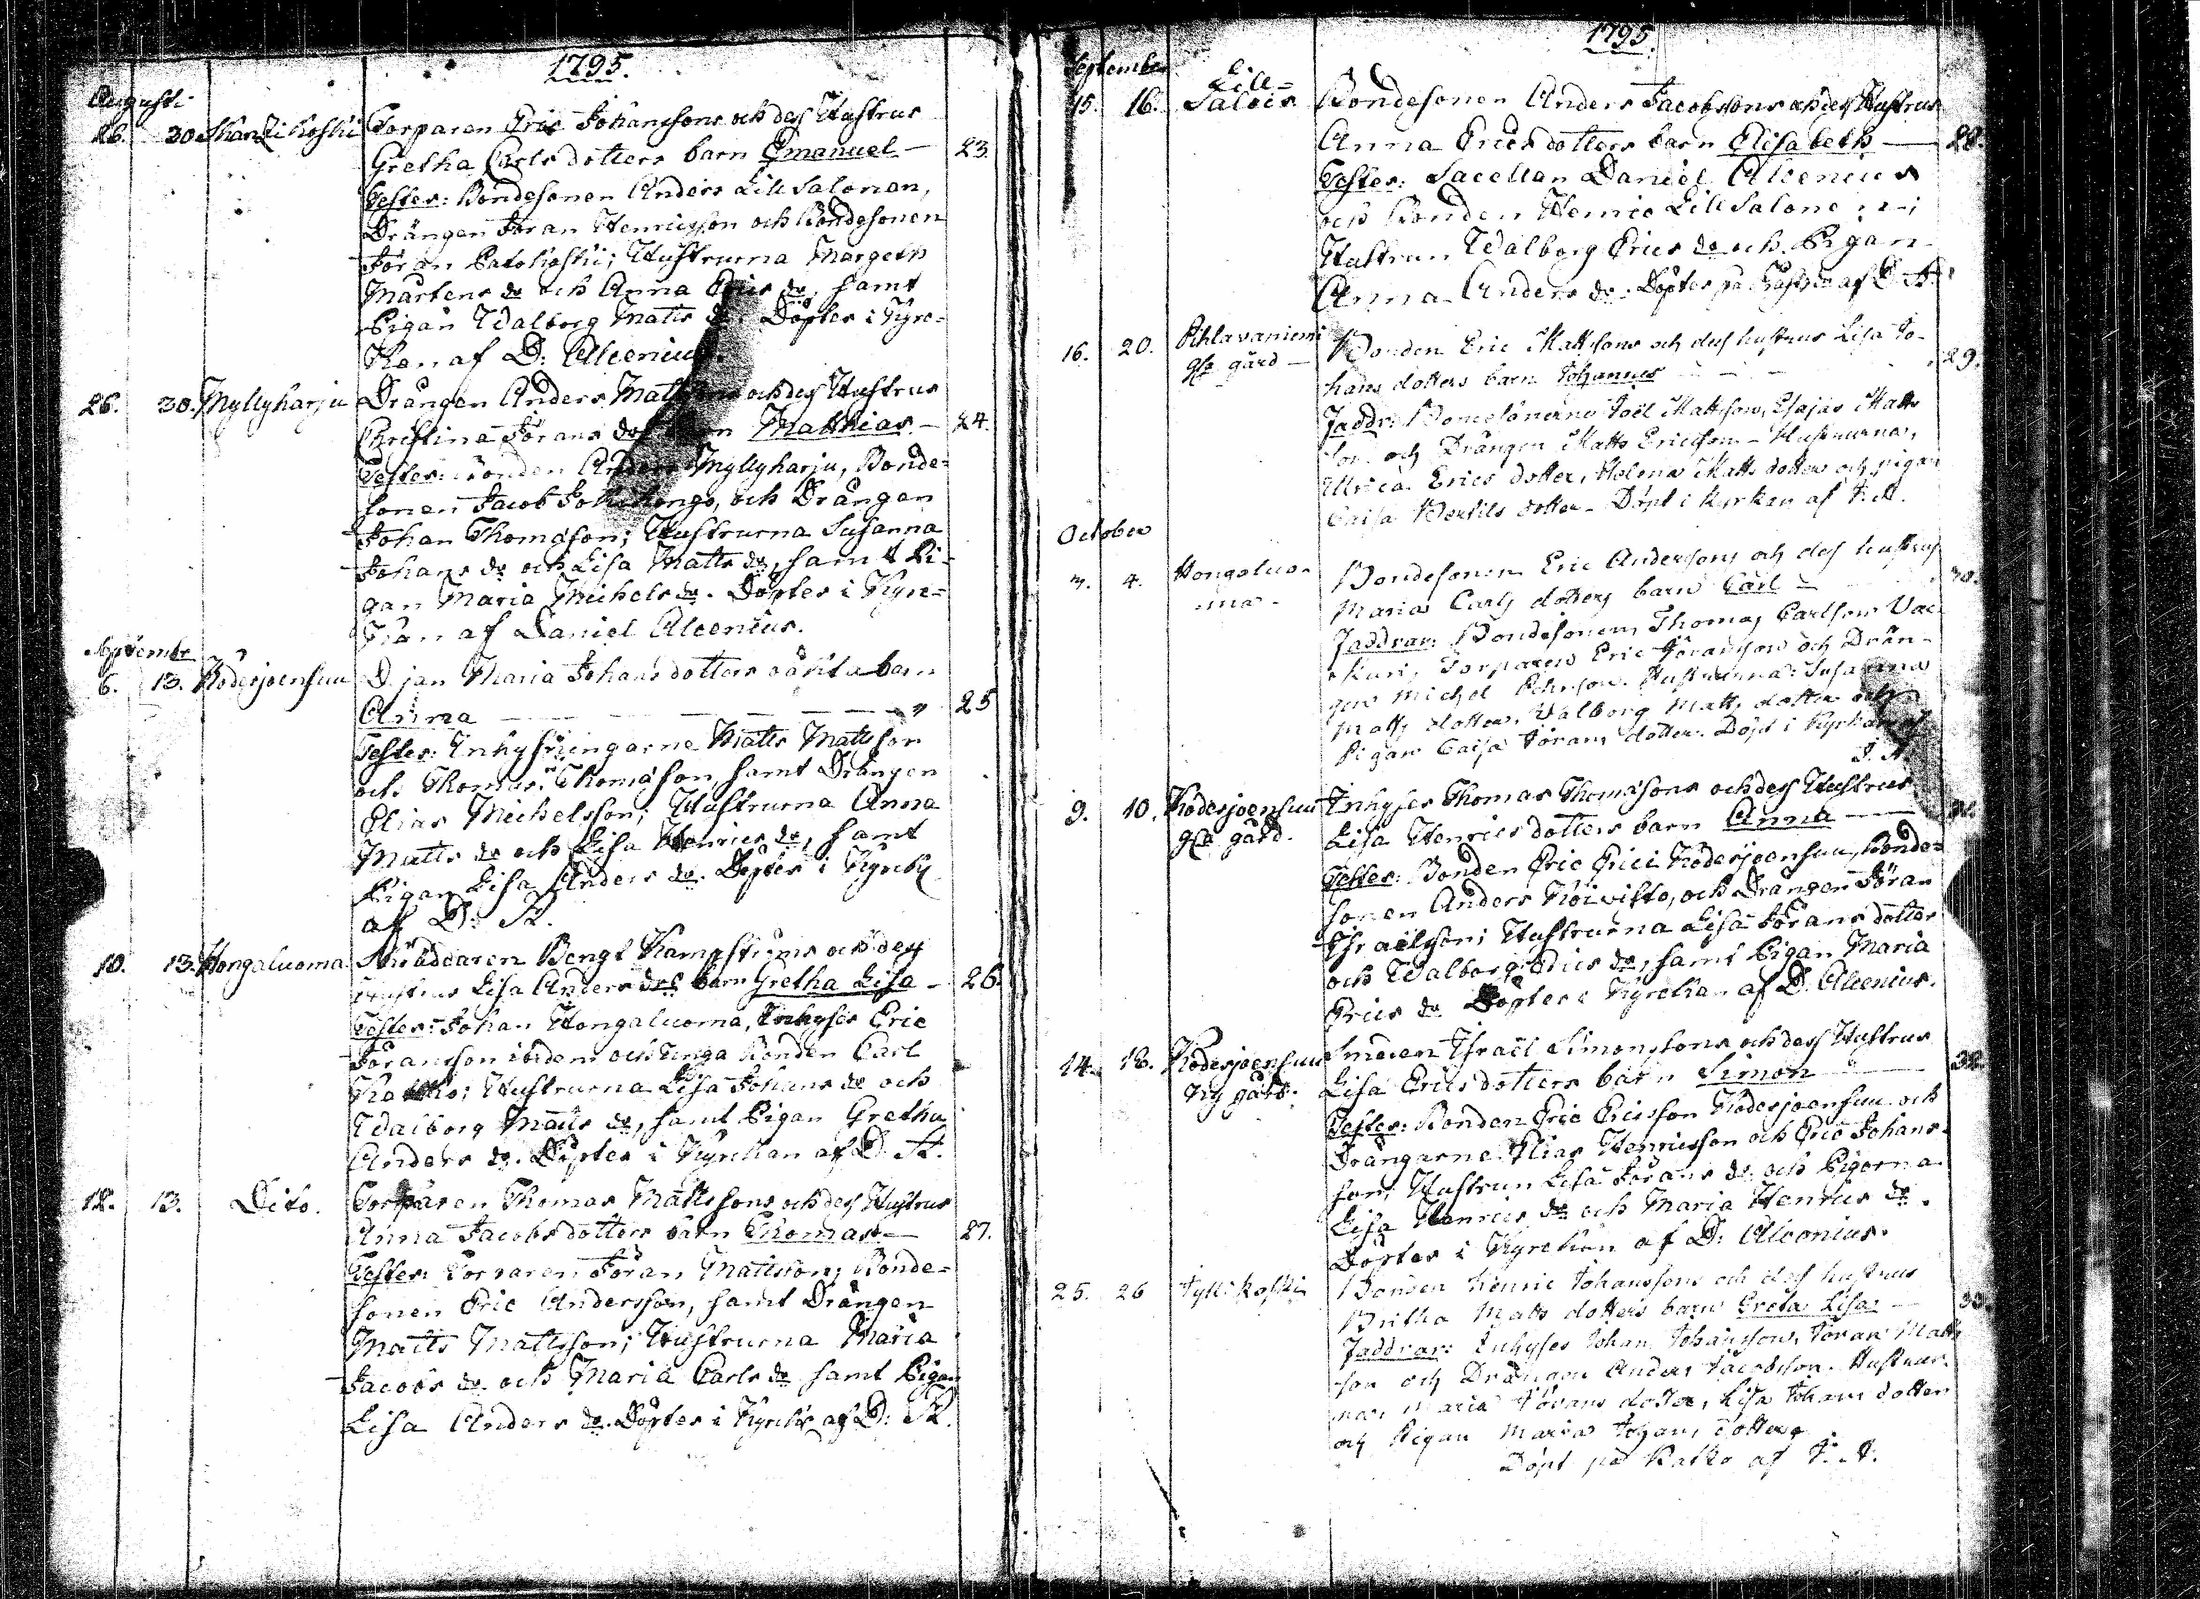 1795.
Augusti
26. 30 Skantzi koski Torparen Eric Johanssons och dess Hustrus
Gretha Carls dotters barn Emanuel — 23.
Testes: Bondesonen Anders Lill Salonen,
Drängen Jöran Henricsson och Bondesonen
Jöran Patokoski; Hustrurna Margeth
Mårtens dr och Anna Erics dr, samt
Pigan Walborg Matts dr. Döptes i Kyrc-
kan af D: Alcenius.
26. 30. Myllyharju Drängen Anders Matts och dess Hustrus
Christina Jörans Matthias — 24.
Testes: Bonden Anders Myllyharju, Bonde-
sonen Jacob och Drängen
Johan Thomasson; Hustrurna Susanna
Johans dr och Lisa Matts dr, samt Pi-
gan Maria Michels dr. Döptes i Kyrc-
kan af Daniel Alcenius.
Septembr
6. 13. Ködesjoensuu Maria Johans dotters oäkta barn
Anna — — — — — — 25
Testes: Inhysingarne Matts Mattsson
och Thomas Thomasson, samt Drängen
Elias Michelsson; Hustrurna Anna
Matts dr och Lisa Henrics dr, samt
Pigan Lisa Anders dr. Döptes i Kyrck
af D: A.
10. 13. Hongaluoma Skräddaren Bengt Kampströms och dess
Hustrus Lisa Anders drs barn Gretha Lisa — 26.
Testes: Johan Hongaluoma, Inhyses Eric
Jöransson ibidem och unga Bonden Carl
Katko; Hustrurna Lisa Johans dr och
Walborg Matts dr, samt Pigan Gretha
Anders dr. Döptes i Kyrckan af D. A.
12. 13. Dito. Torparen Thomas Mattssons och dess Hustrus
Anna Jacobs dotters barn Thomas — 27.
Testes: Torparen Jöran Mattsson, Bonde-
sonen Eric Andersson, samt Drängen
Matts Mattsson; Hustrurna Maria
Jacobs dr och Maria Carls dr samt Pigan
Lisa Anders dr. Döptes i Kyrck af D: A.
1795.
September
15. 16. Lill-
Salois Bondesonen Anders Jacobssons och dess Hustrus
Anna Erics dotters barn Elisabeth — 28.
Testes: Sacellan Daniel Alcenius
och Bonden Henric Lill Salonen;
Hustrun Walborg Erics dr och Pigan
Anna Anders dr. Döptes på af D. A.
16. 20. Pihlavaniemi
gla gård — Bonden Eric Mattssons och dess hustrus Lisa Jo-
hans dotters barn Johannes — — 29.
Faddr: Bondesönerne Joël Mattsson, Esajas Matts
son och Drängen Matts Ericsson — Hustrurna,
Ulrica Erics dotter, Helena Matts dotter och pigan
Caisa Bertils dotter — Döpt i kyrkan af J. A.
October
3. 4. Hongaluo-
ma. Bondesonen Eric Anderssons och dess hustrus
Maria Carls dotters barn Carl — 30.
Faddrar: Bondesonen Thomas Carlsson Vac-
kuri, Torparen Eric Jöransson och Drän-
gen Michel Hustrurna: Susanna
Matts dotter, Valborg Matts dotter och
Pigan Caisa Jörans dotter. Döpt i Kyrkan af
J. A.
9. 10. Ködesjoensuu
gla gård. Inhyses Thomas Thomassons och dess Hustrus
Lisa Henrics dotters barn Anna — 31.
Testes: Bonden Eric Erici Ködesjoensuu, Bonde-
sonen Anders Koivisto, och Drängen Jöran
Israelsson; Hustrurna Lisa Jörans dotter
och Walborg Erics dr, samt Pigan Maria
Erics dr Döptes i Kyrckan af D. Alcenius.
14. 18. Ködesjoensuu
ny gård. Smeden Israël Simonssons och dess Hustrus
Lisa Erics dotters barn Simon — 32.
Testes: Bonden Eric Ericsson Ködesjoensuu och
Drängarne Elias Henricsson och Eric Johans-
son; Hustrun Lisa Jörans dr och Pigorna
Lisa Henrics dr och Maria Henrics dr.
Döptes i Kyrckan af D. Alcenius.
25. 26 Jyllikoski Bonden Henric Johanssons och dess hustrus
Britha Matts dotters barn Greta Lisa — 33.
Faddrar: Inhyses Johan Johansson, Jöran Matts
son och Drängen Anders Jacobsson. Hustrur-
na, Maria Jörans dotter, Lisa Johans dotter
och Pigan Maria Johans dotter,
Döpt på Katko af J. A.